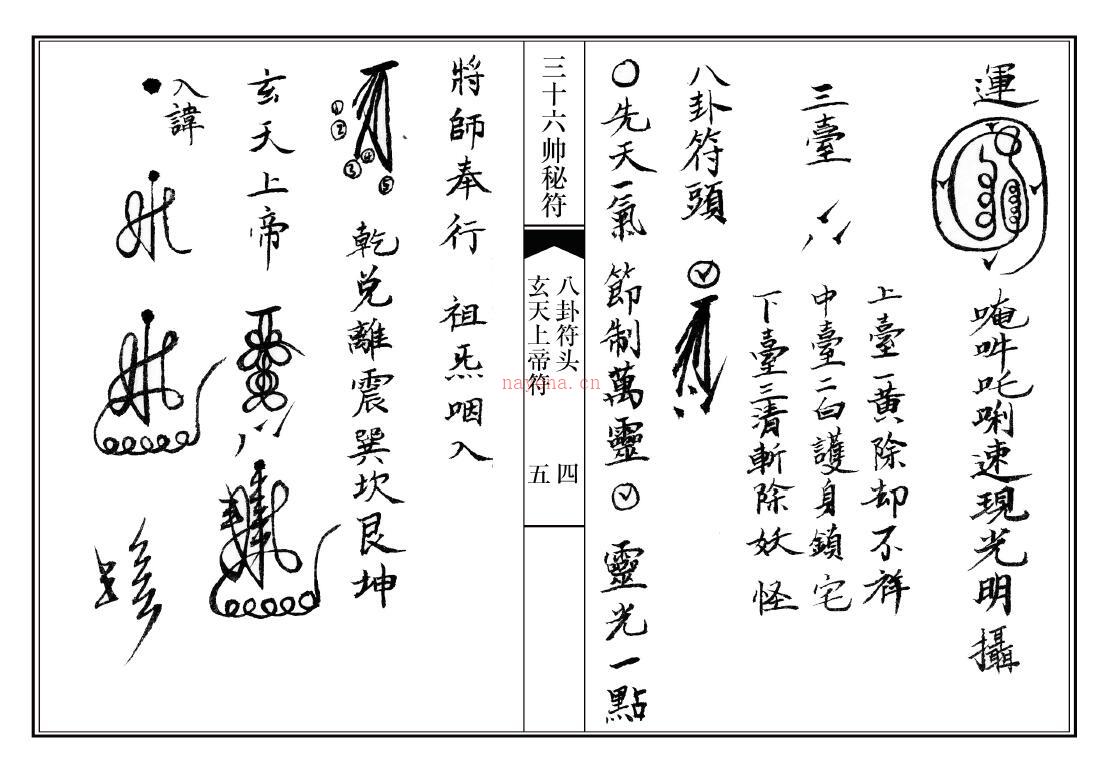 運
唵吽吒唎速現光明攝
三臺
上臺一黄除却不祥
中臺二白護身鎖宅
下臺三清斬除妖怪
八卦符頭
〇先天一氣 節制萬靈 靈光一點
三十六帅秘符
八卦符头
玄天上帝符
四
五
將師奉行 祖炁咽入
①
②
③
④
⑤
乾兌離震巽坎艮坤
玄天上帝
入諱
nayona.cn